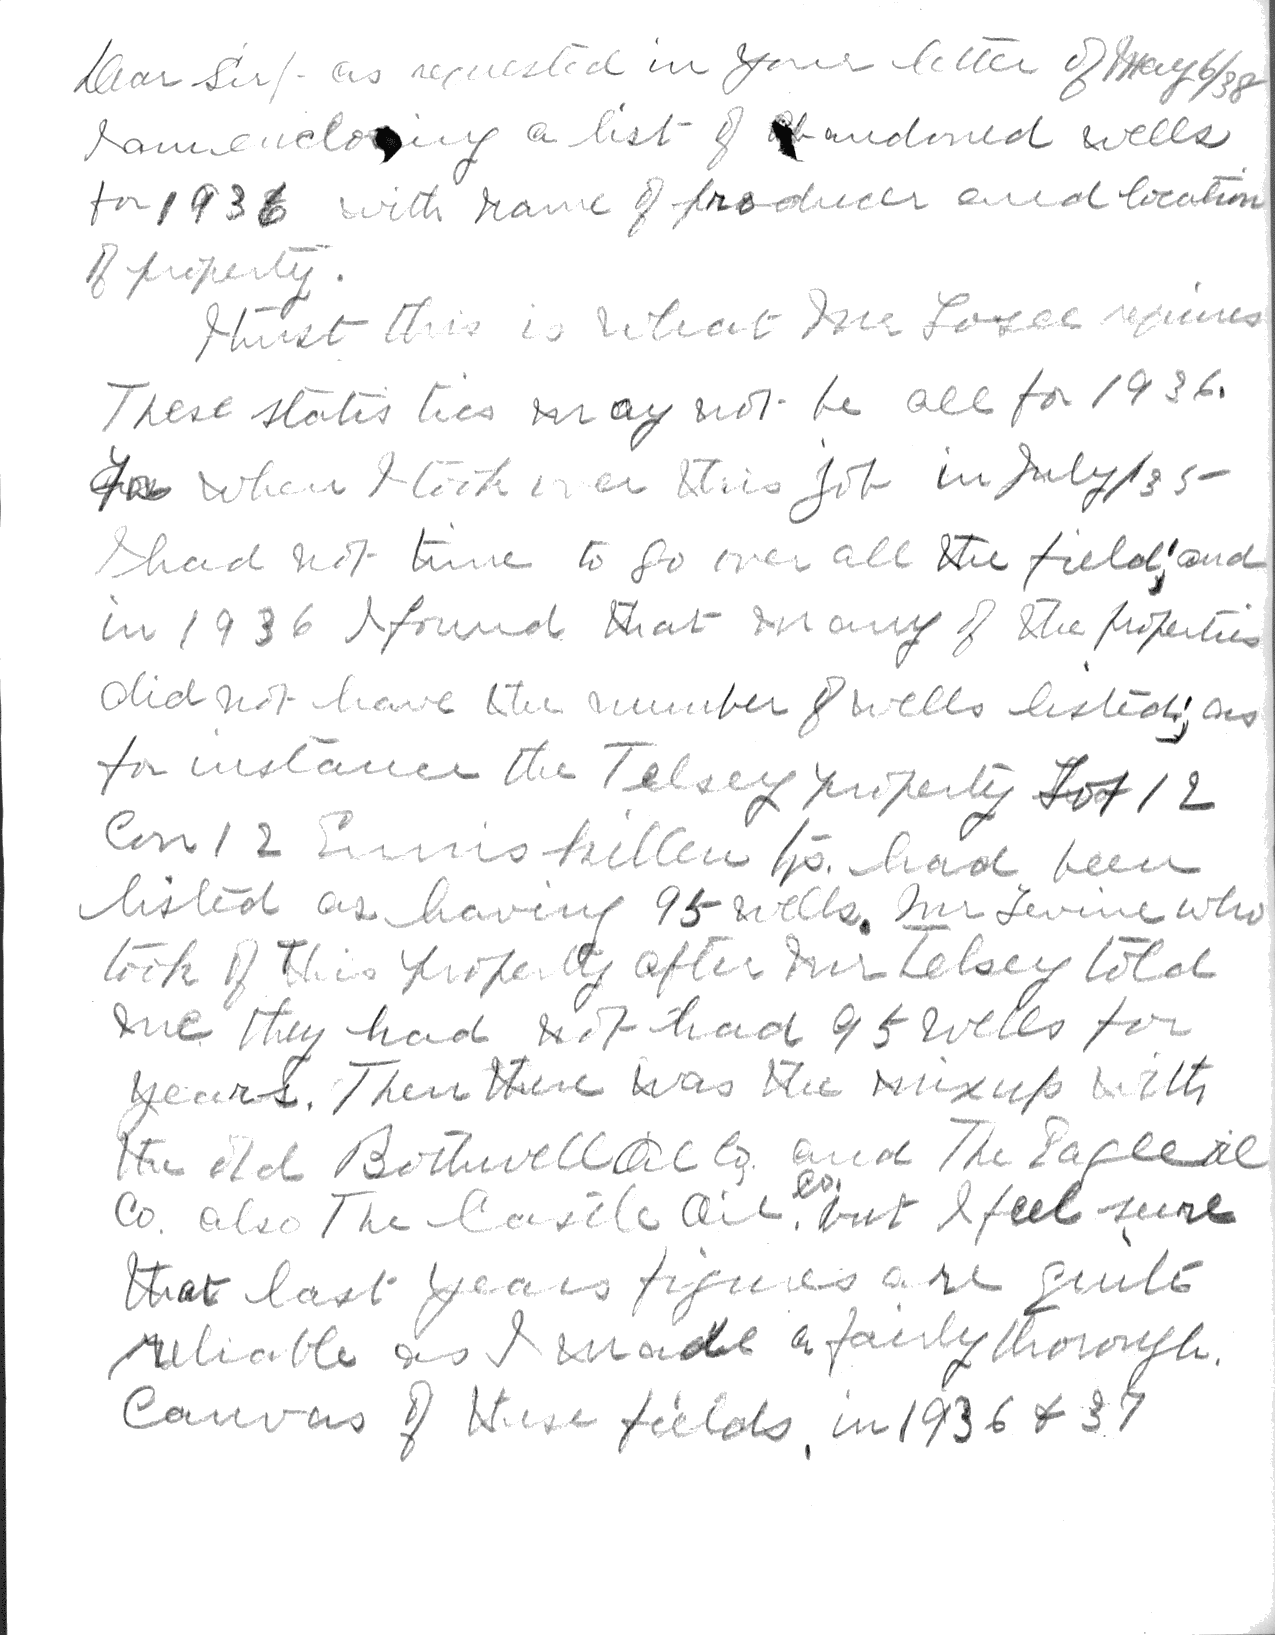 Dear Sir/- as requested in your letter of May 6/38
I am enclosing a list of abandoned wells
for 1936 with name of producer and location
of property.
I trust this is what Mr Lozee requires
These statistics may not be all for 1936.
for when I took over this job in July/35-
I had not time to go over all the field; and
in 1936 I found that many of the properties
did not have the number of wells listed; as
for instance the Telsey property Lot 12
Con 12 Enniskillen tp. had been
listed as having 95 wells. Mr Levine who
took of this property after Mr Telsey told
me they had not had 95 wells for
years. Then there was the mixup with
the old Bothwell Oil Co. and The Eagle oil
Co. also The Castle Oil Co. but I feel sure
that last years figures are quite
reliable as I made a fairly thorough.
Canvas of these fields, in 1936 & 37